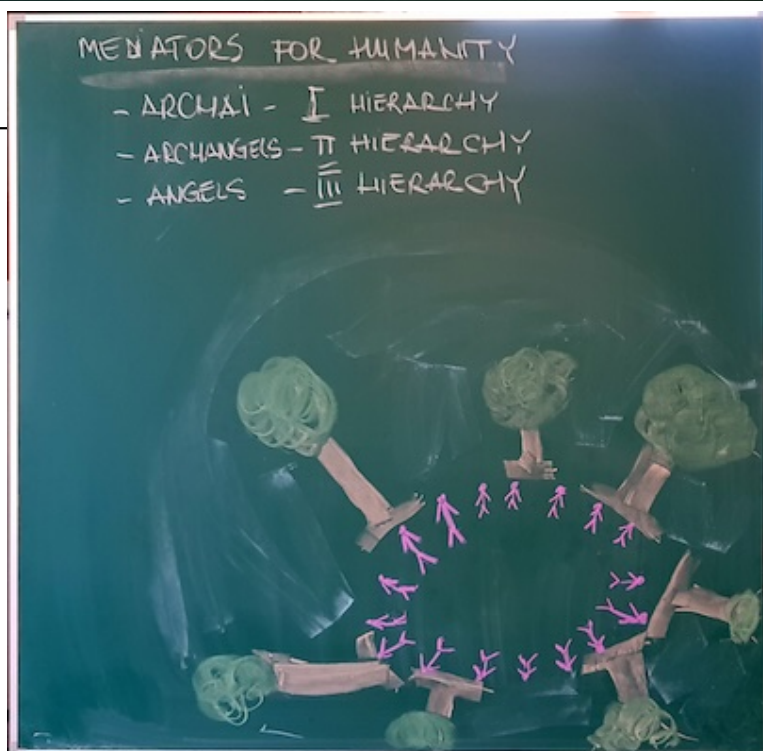 MEDIATORS FOR HUMANITY
- ARCHAI - I HIERARCHY
- ARCHANGELS - II HIERARCHY
- ANGELS - III HIERARCHY